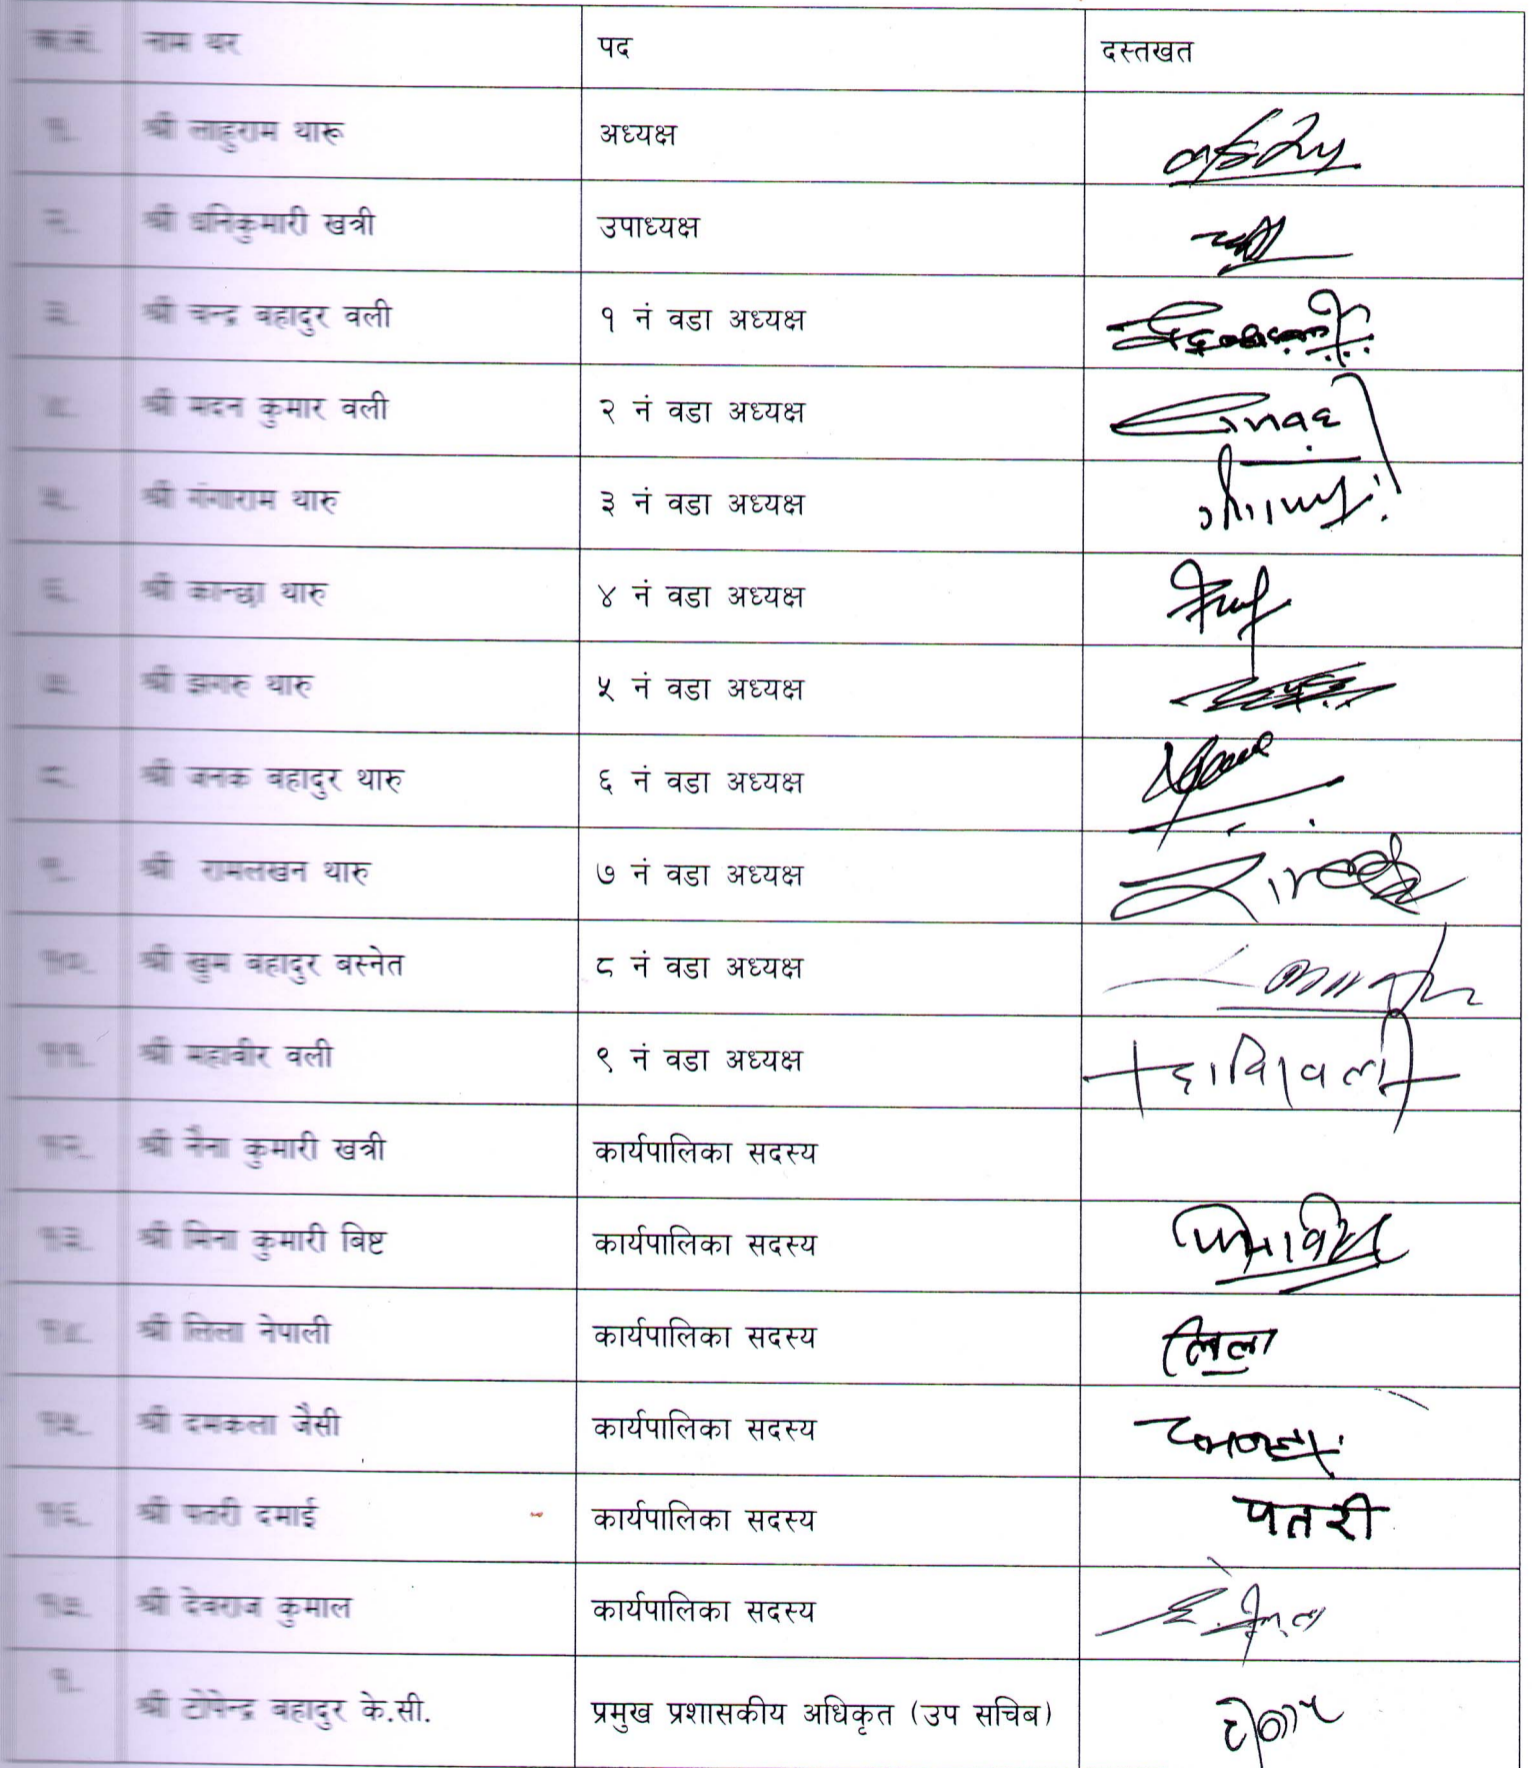 क्र.सं. नाम थर पद दस्तखत
१. श्री लाहुराम थारू अध्यक्ष
२. श्री धनिकुमारी खत्री उपाध्यक्ष
३. श्री चन्द्र बहादुर वली १ नं वडा अध्यक्ष
४. श्री मदन कुमार वली २ नं वडा अध्यक्ष
५. श्री गंगाराम थारु ३ नं वडा अध्यक्ष
६. श्री कान्छा थारु ४ नं वडा अध्यक्ष
७. श्री झगरु थारु ५ नं वडा अध्यक्ष
८. श्री जनक बहादुर थारु ६ नं वडा अध्यक्ष
९. श्री रामलखन थारु ७ नं वडा अध्यक्ष
१०. श्री खुम बहादुर बस्नेत ८ नं वडा अध्यक्ष
११. श्री महावीर वली ९ नं वडा अध्यक्ष
१२. श्री नैना कुमारी खत्री कार्यपालिका सदस्य
१३. श्री मिना कुमारी बिष्ट कार्यपालिका सदस्य
१४. श्री लिला नेपाली कार्यपालिका सदस्य लिला
१५. श्री दमकला जैसी कार्यपालिका सदस्य
१६. श्री पतरी दमाई कार्यपालिका सदस्य पतरी
१७. श्री देवराज कुमाल कार्यपालिका सदस्य
१. श्री टोपेन्द्र बहादुर के.सी. प्रमुख प्रशासकीय अधिकृत (उप सचिब)